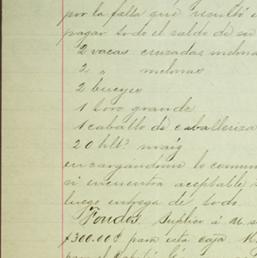 por la falta que resultó
pagar todo el saldo de su
2 vacas cruzadas
2 " melonas
2 bueyes
1 toro grande
1 caballo de caballeriza
20 hlts maiz
encargándome le comun
si encuentra aceptable
luego entrega de todo
Fondos. Suplico á U. se
$300.00 para esta caja